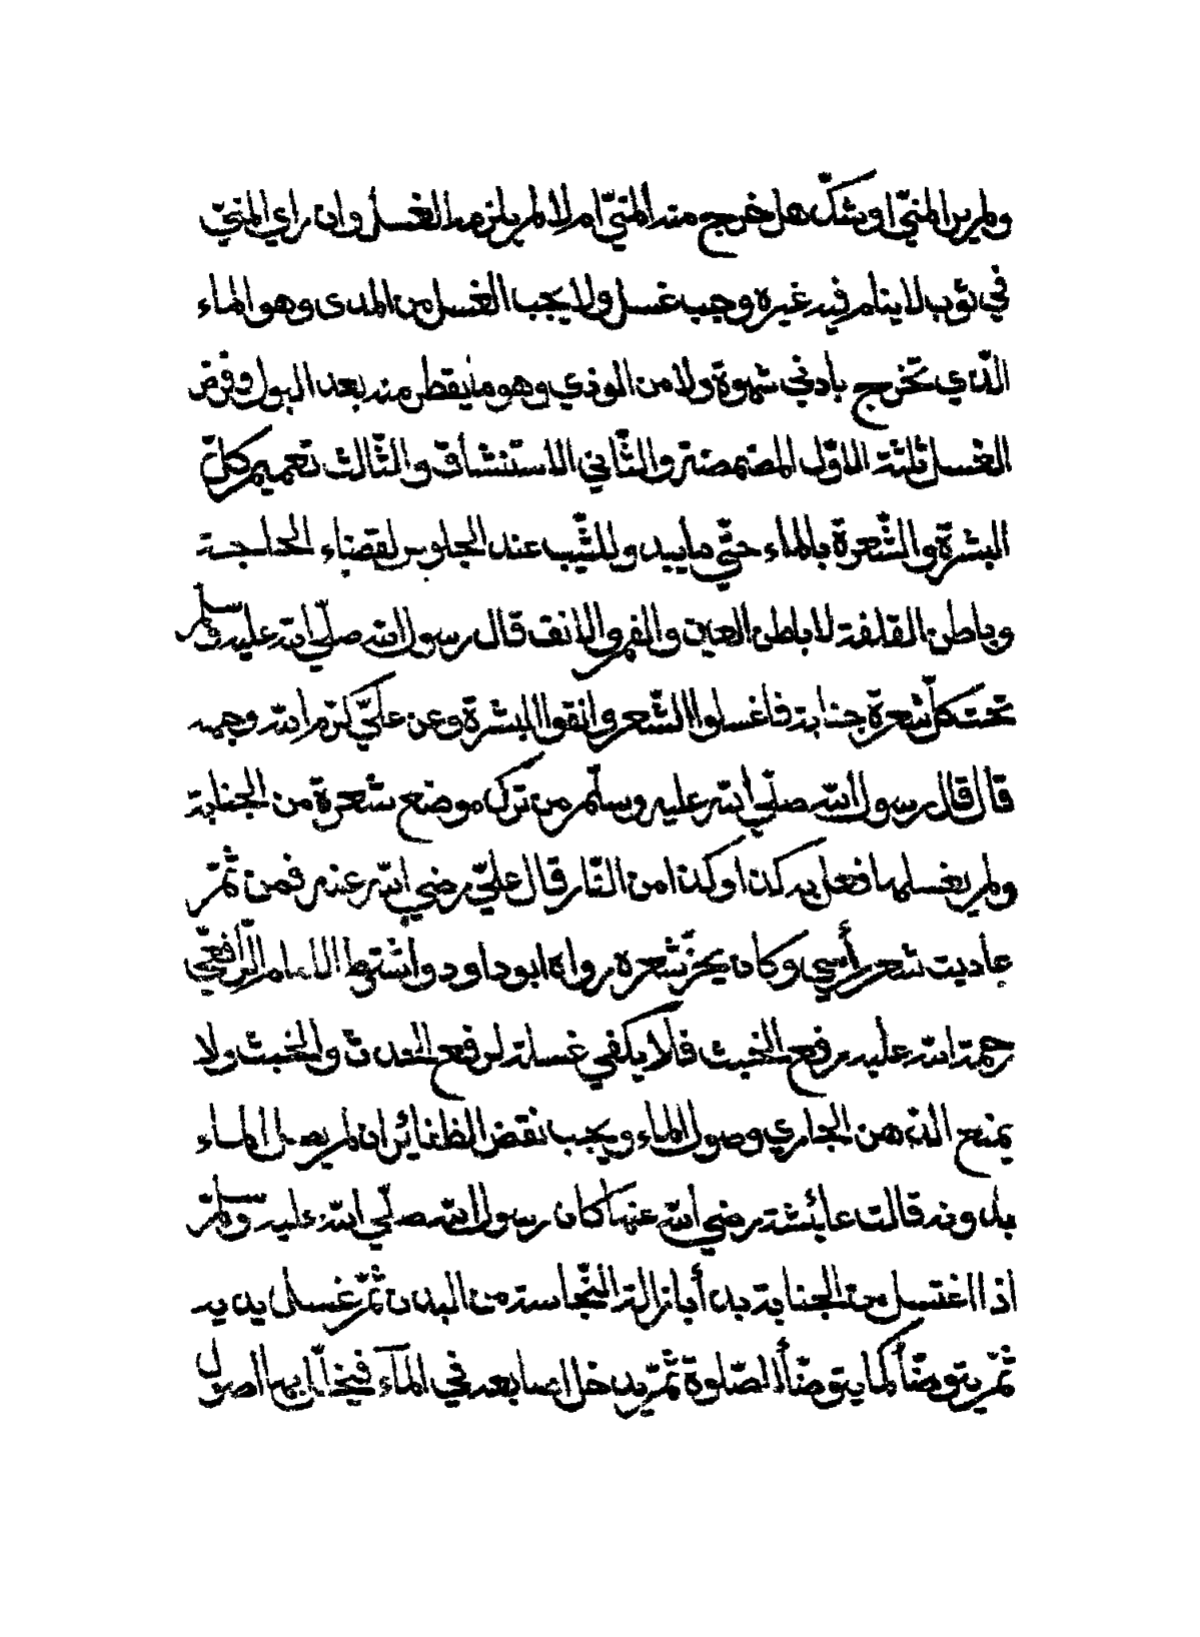 ولم ير المنيّ او شكّ هل خرج منه المنيّ ام لا لم يلزمه الغسل وان راي المنيّ
في ثوب لا ينام فيه غيره وجب غسل ولا يجب الغسل من المدى وهو الماء
الّذي تخرج بأدني شهوة ولا من الوذي وهو ما يقطر منه بعد البول وفرض
الغسل ثلثة الاوّل المضمضة والثّاني الاستنشاق والثّالث تعميم كلّ
البشرة والشّعرة بالماء حتّي مأييد وللثّيب عند الجلوس لقضاء الحاجة
وباطن القلفة لا باطن العين والفم والانف قال رسول الله صلّي الله عليه وسلّم
تحت كلّ شعرة جنابة فاغسلوا الشّعر وانقوا البشرة وعن عليّ كرّم الله وجهه
قال قال رسول الله صلّي الله عليه وسلّم من ترك موضع شعرة من الجنابة
ولم يغسلها فعل به كذا وكذا من النّار قال عليّ رضي الله عنه فمن ثمّ
عاديت شعر رأسي وكان يجزّ شعره رواه ابو داود واشترط الامام الرّافعّي
رحمة الله عليه رفع الخبث فلا يكفي غسلة لرفع الحدث والخبث ولا
يمنع الدّهن الجاري وصول الماء ويجب نقض الظفائر ان لم يصل الماء
بدونه قالت عائشة رضي الله عنها كان رسول الله صلّي الله عليه وسلّم
اذا اغتسل من الجنابة بدأ بازالة النّجاسة من البدن ثمّ غسل يديه
ثمّ يتوضّأ كما يتوضّأ الصّلوة ثمّ يدخل اصابعه في المآء فيخلّل بها اصول